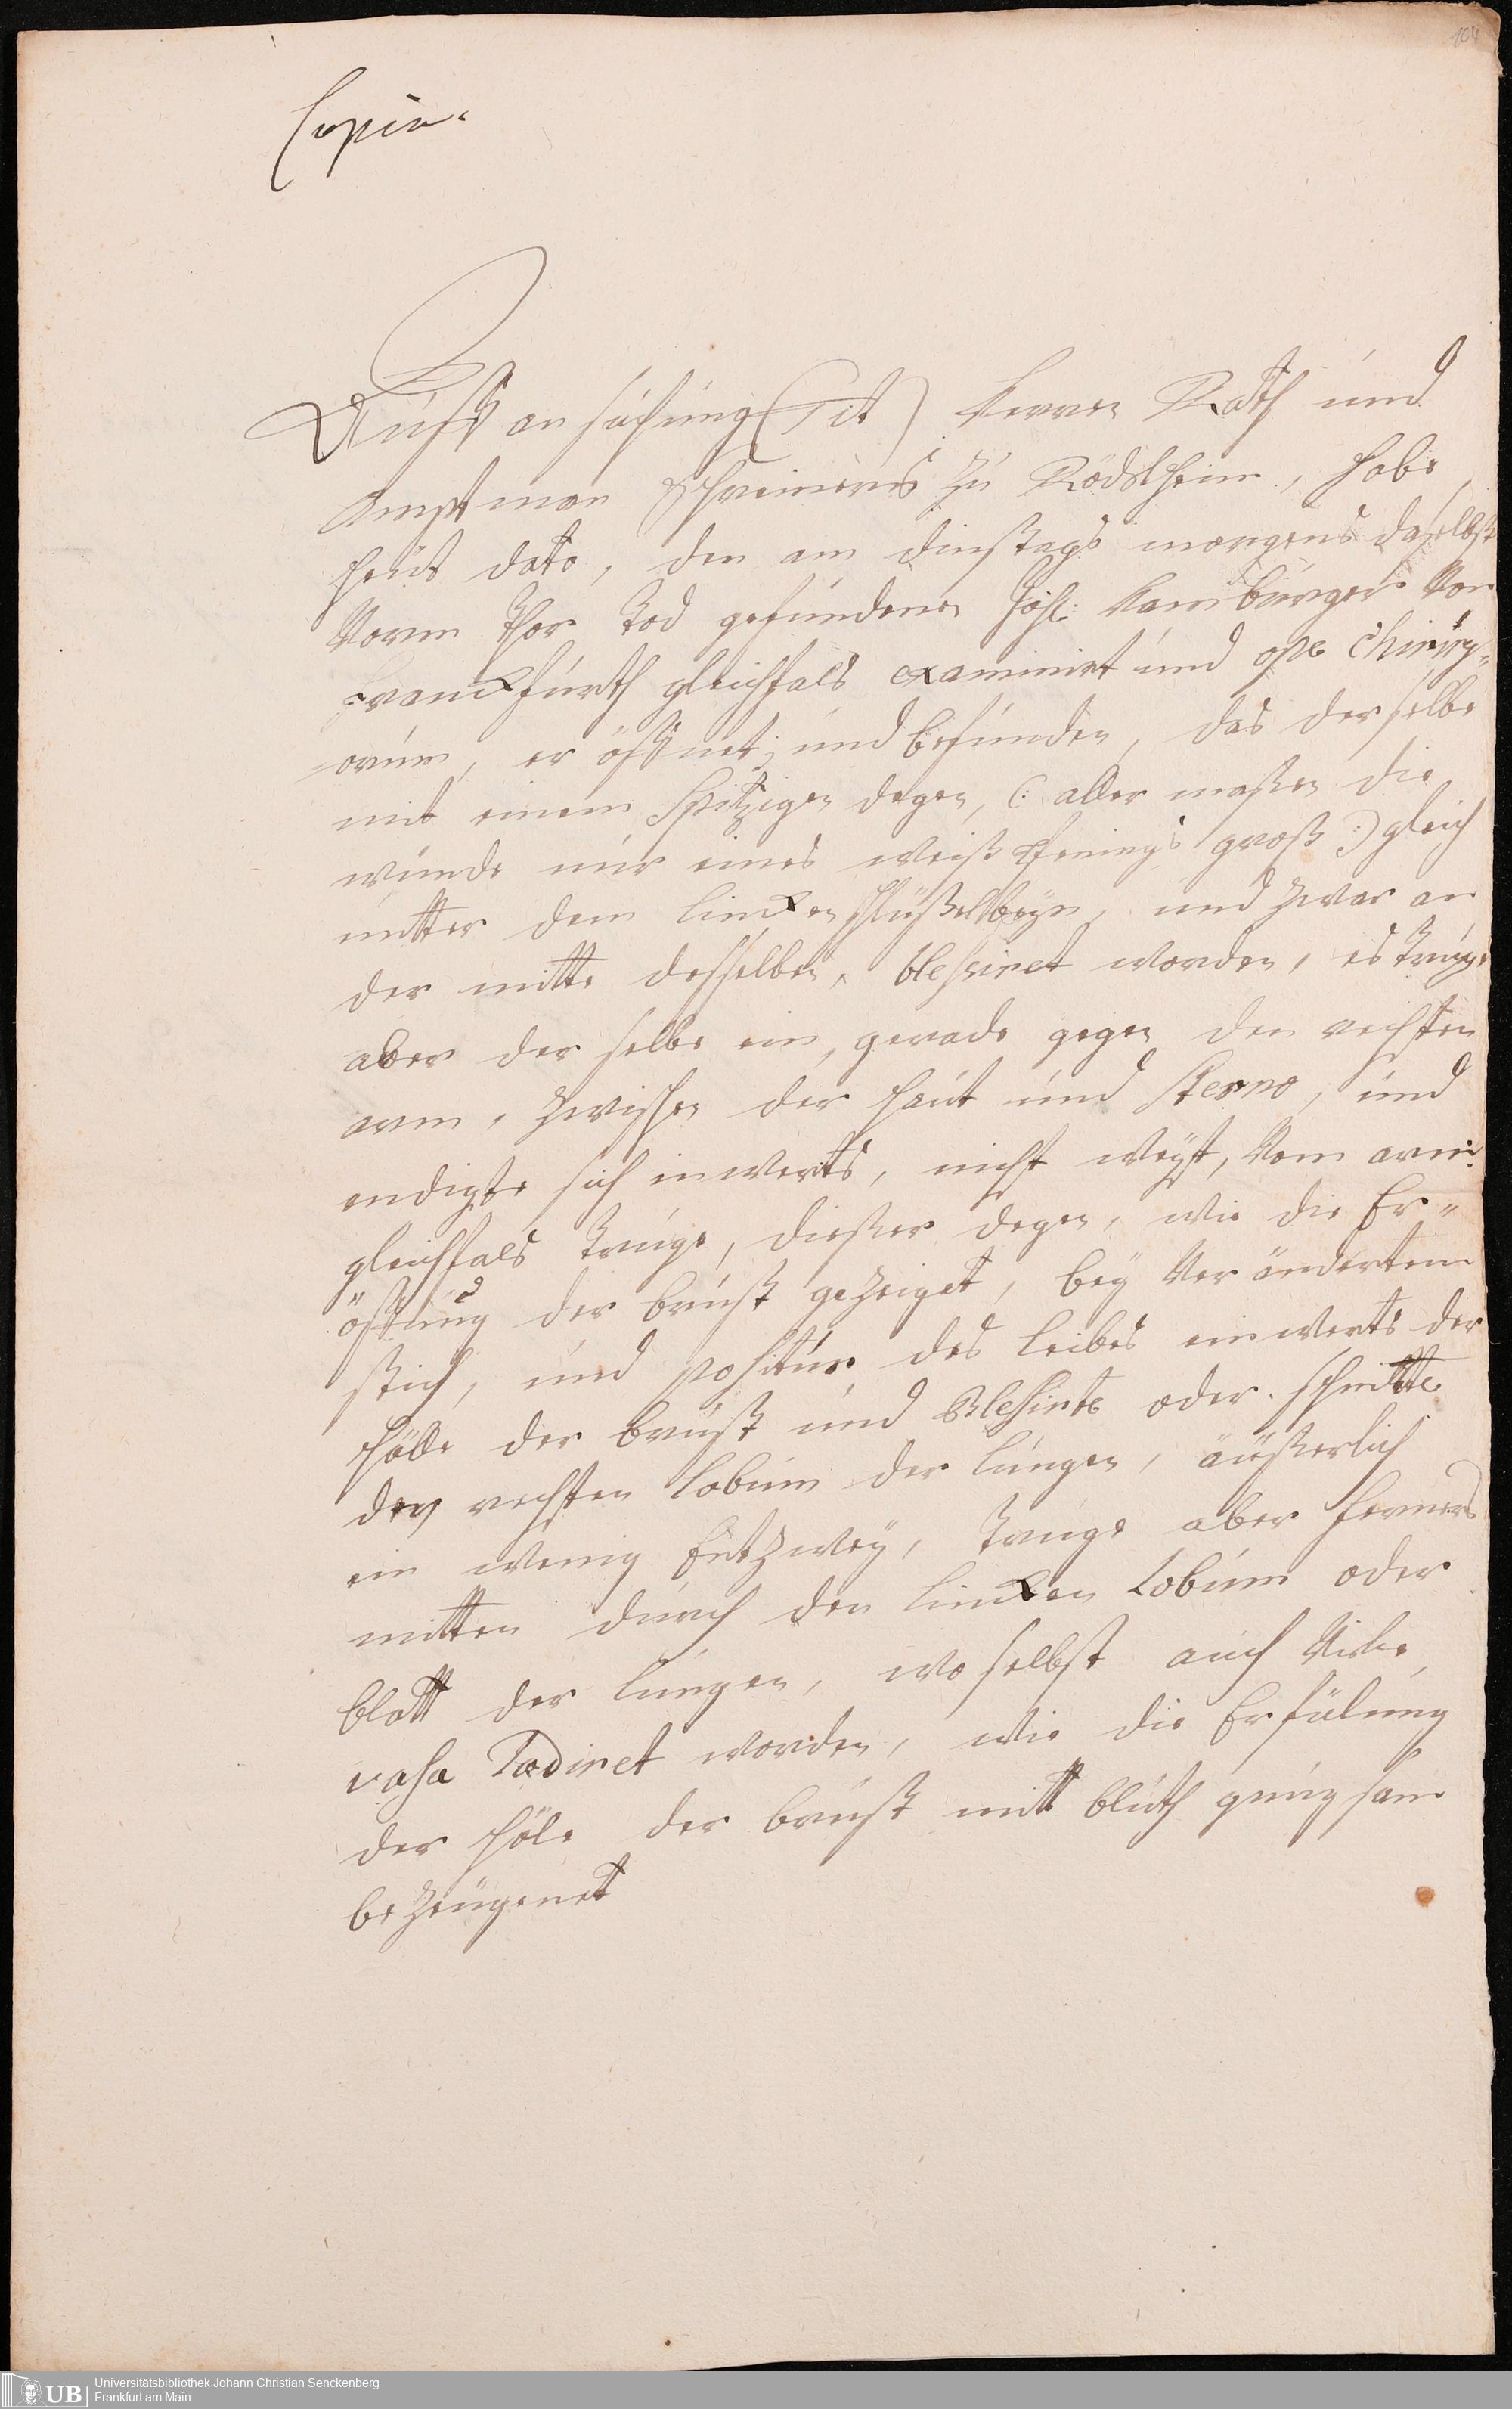 104
Copia.
Auff an suchung (Tit) Herren Rath und
Amptman Schreiners zu Rödelheim, habe
heut dato, den am dinstags morgens daselbst
Vorm Thor Tod gefundenen Joh: Hamburger Von
Franckfurth gleichfals examinirt und ope Chirurg„
orum, er öffnet; und befunden, das der selbe
mit einem Spitzigen degen, (: aller maßen die
wunde nur eines weiß Pfenings groß :) gleich
unter dem lincken schlüßelbeyn, und zwar an
der mitte desselben, blessiret worden, es Truge
aber der selbe ein, gerade gegen den rechten
arm, zwischen der haut und Sterno, und
endigte sich inwerts, nicht weyt, Vom arm:
gleichfals Truge, dießer degen, wie die Er„
öffnung der brust gezeiget, bey Ver ändertem
stich, und positur des leibes einwerts der
hölle der brust und Blesirte oder schnitte
den rechten Lobum der lungen, äußerlich
ein wenig Entzwey, Truge aber ferners
mitten durch den lincken Lobum oder
blatt der lungen, wo selbst auch Viele
vasa Lædiret worden, wie die Erfülung
der höle der brust mitt bluth gnugsam
bezeugenet
UB
Universitätsbibliothek Johann Christian Senckenberg
Frankfurt am Main